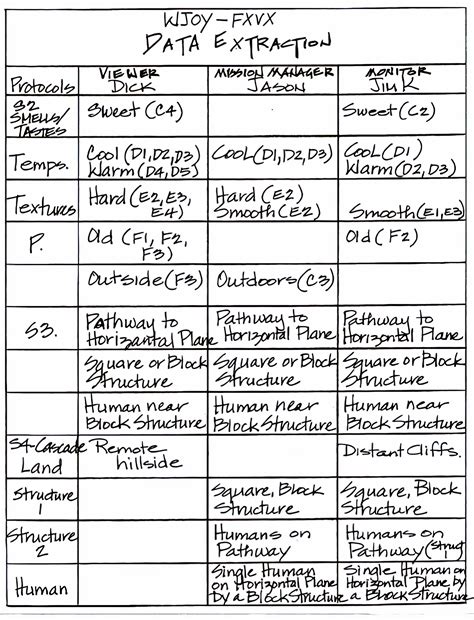 WJOY-FXVX
DATA EXTRACTION
Protocols
VIEWER
DICK
MISSION MANAGER
JASON
MONITOR
JIM K
S2
SMELLS/
TASTES
Sweet (C4)
Sweet (C2)
Temps.
Cool (D1, D2, D3)
Warm (D4, D5)
COOL (D1, D2, D3)
COOL (D1)
Warm (D2, D3)
Textures
Hard (E2, E3,
E4)
Hard (E2)
Smooth (E2)
Smooth (E1, E3)
P.
Old (F1, F2,
F3)
Old (F2)
Outside (F3)
Outdoors (C3)
S3.
Pathway to
Horizantal Plane
Pathway to
Horizontal Plane
Pathway to
Horizontal Plane
Square or Block
Structure
Square or Block
Structure
Square or Block
Structure
Human near
Block Structure
Human near
Block Structure
Human near
Block Structure
S4-Cascade
Land
Remote
hillside
Distant Cliffs.
Structure
1
Square, Block
Structure
Square, Block
Structure
Structure
2
Humans on
Pathway
Humans on
Pathway (Struct 1)
Human
Single Human
on Horizontal Plane
by a Block Structure
Single Human on
Horizontal Plane by
a Block Structure